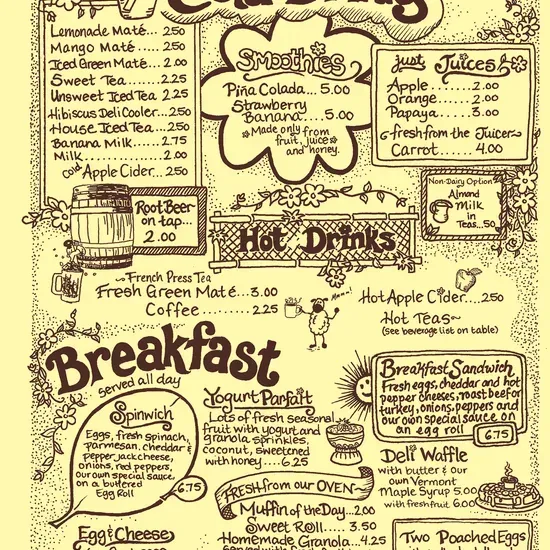 Cold Drinks
Lemonade Maté.... 2.50
Mango Maté..... 2.50
Iced Green Maté.. 2.00
Sweet Tea..... 2.25
Unsweet Iced Tea 2.25
Hibiscus Deli Cooler... 2.50
House Iced Tea... 2.50
Banana Milk.... 2.75
Milk ........ 2.00
cold Apple Cider.... 2.50
Smoothies
Piña Colada... 5.00
Strawberry
Banana.... 5.00
*Made only from
fruit, juice
and honey.
just Juices
Apple ....... 2.00
Orange ...... 2.00
Papaya ..... 3.00
~fresh from the Juicer~
Carrot.... 4.00
Root Beer
on tap...
2.00
Non-Dairy Option
Almond
Milk
in
Teas...50
Hot Drinks
French Press Tea
Fresh Green Maté.... 3.00
Coffee ....... 2.25
Mmmm!
Hot Apple Cider... 2.50
Hot Teas~
(see beverage list on table)
Breakfast
served all day
Spinwich
Eggs, fresh spinach,
parmesan, cheddar &
pepper jack cheese,
onions, red peppers,
our own special sauce,
on a buttered
Egg Roll
6.75
Yogurt Parfait
Lots of fresh seasonal
fruit with yogurt and
granola sprinkles,
coconut, sweetened
with honey.... 6.25
Breakfast Sandwich
Fresh eggs, cheddar and hot
pepper cheeses, roast beef or
turkey, onions, peppers and
our own special sauce on
an egg roll
6.75
Deli Waffle
with butter & our
own Vermont
Maple Syrup 5.00
with fresh fruit 6.00
Fresh from our OVEN~
Muffin of the Day... 2.00
Sweet Roll..... 3.50
Homemade Granola... 4.25
Egg & Cheese
Two Poached Eggs